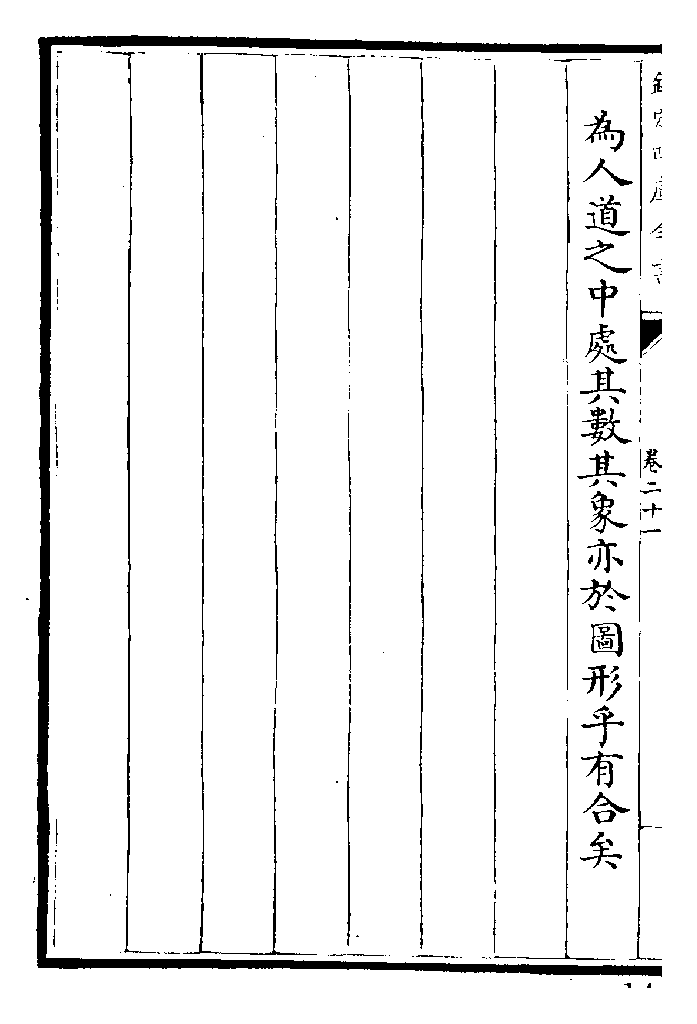 欽定四庫全書
卷二十一
為人道之中處其數其象亦於圖形乎有合矣